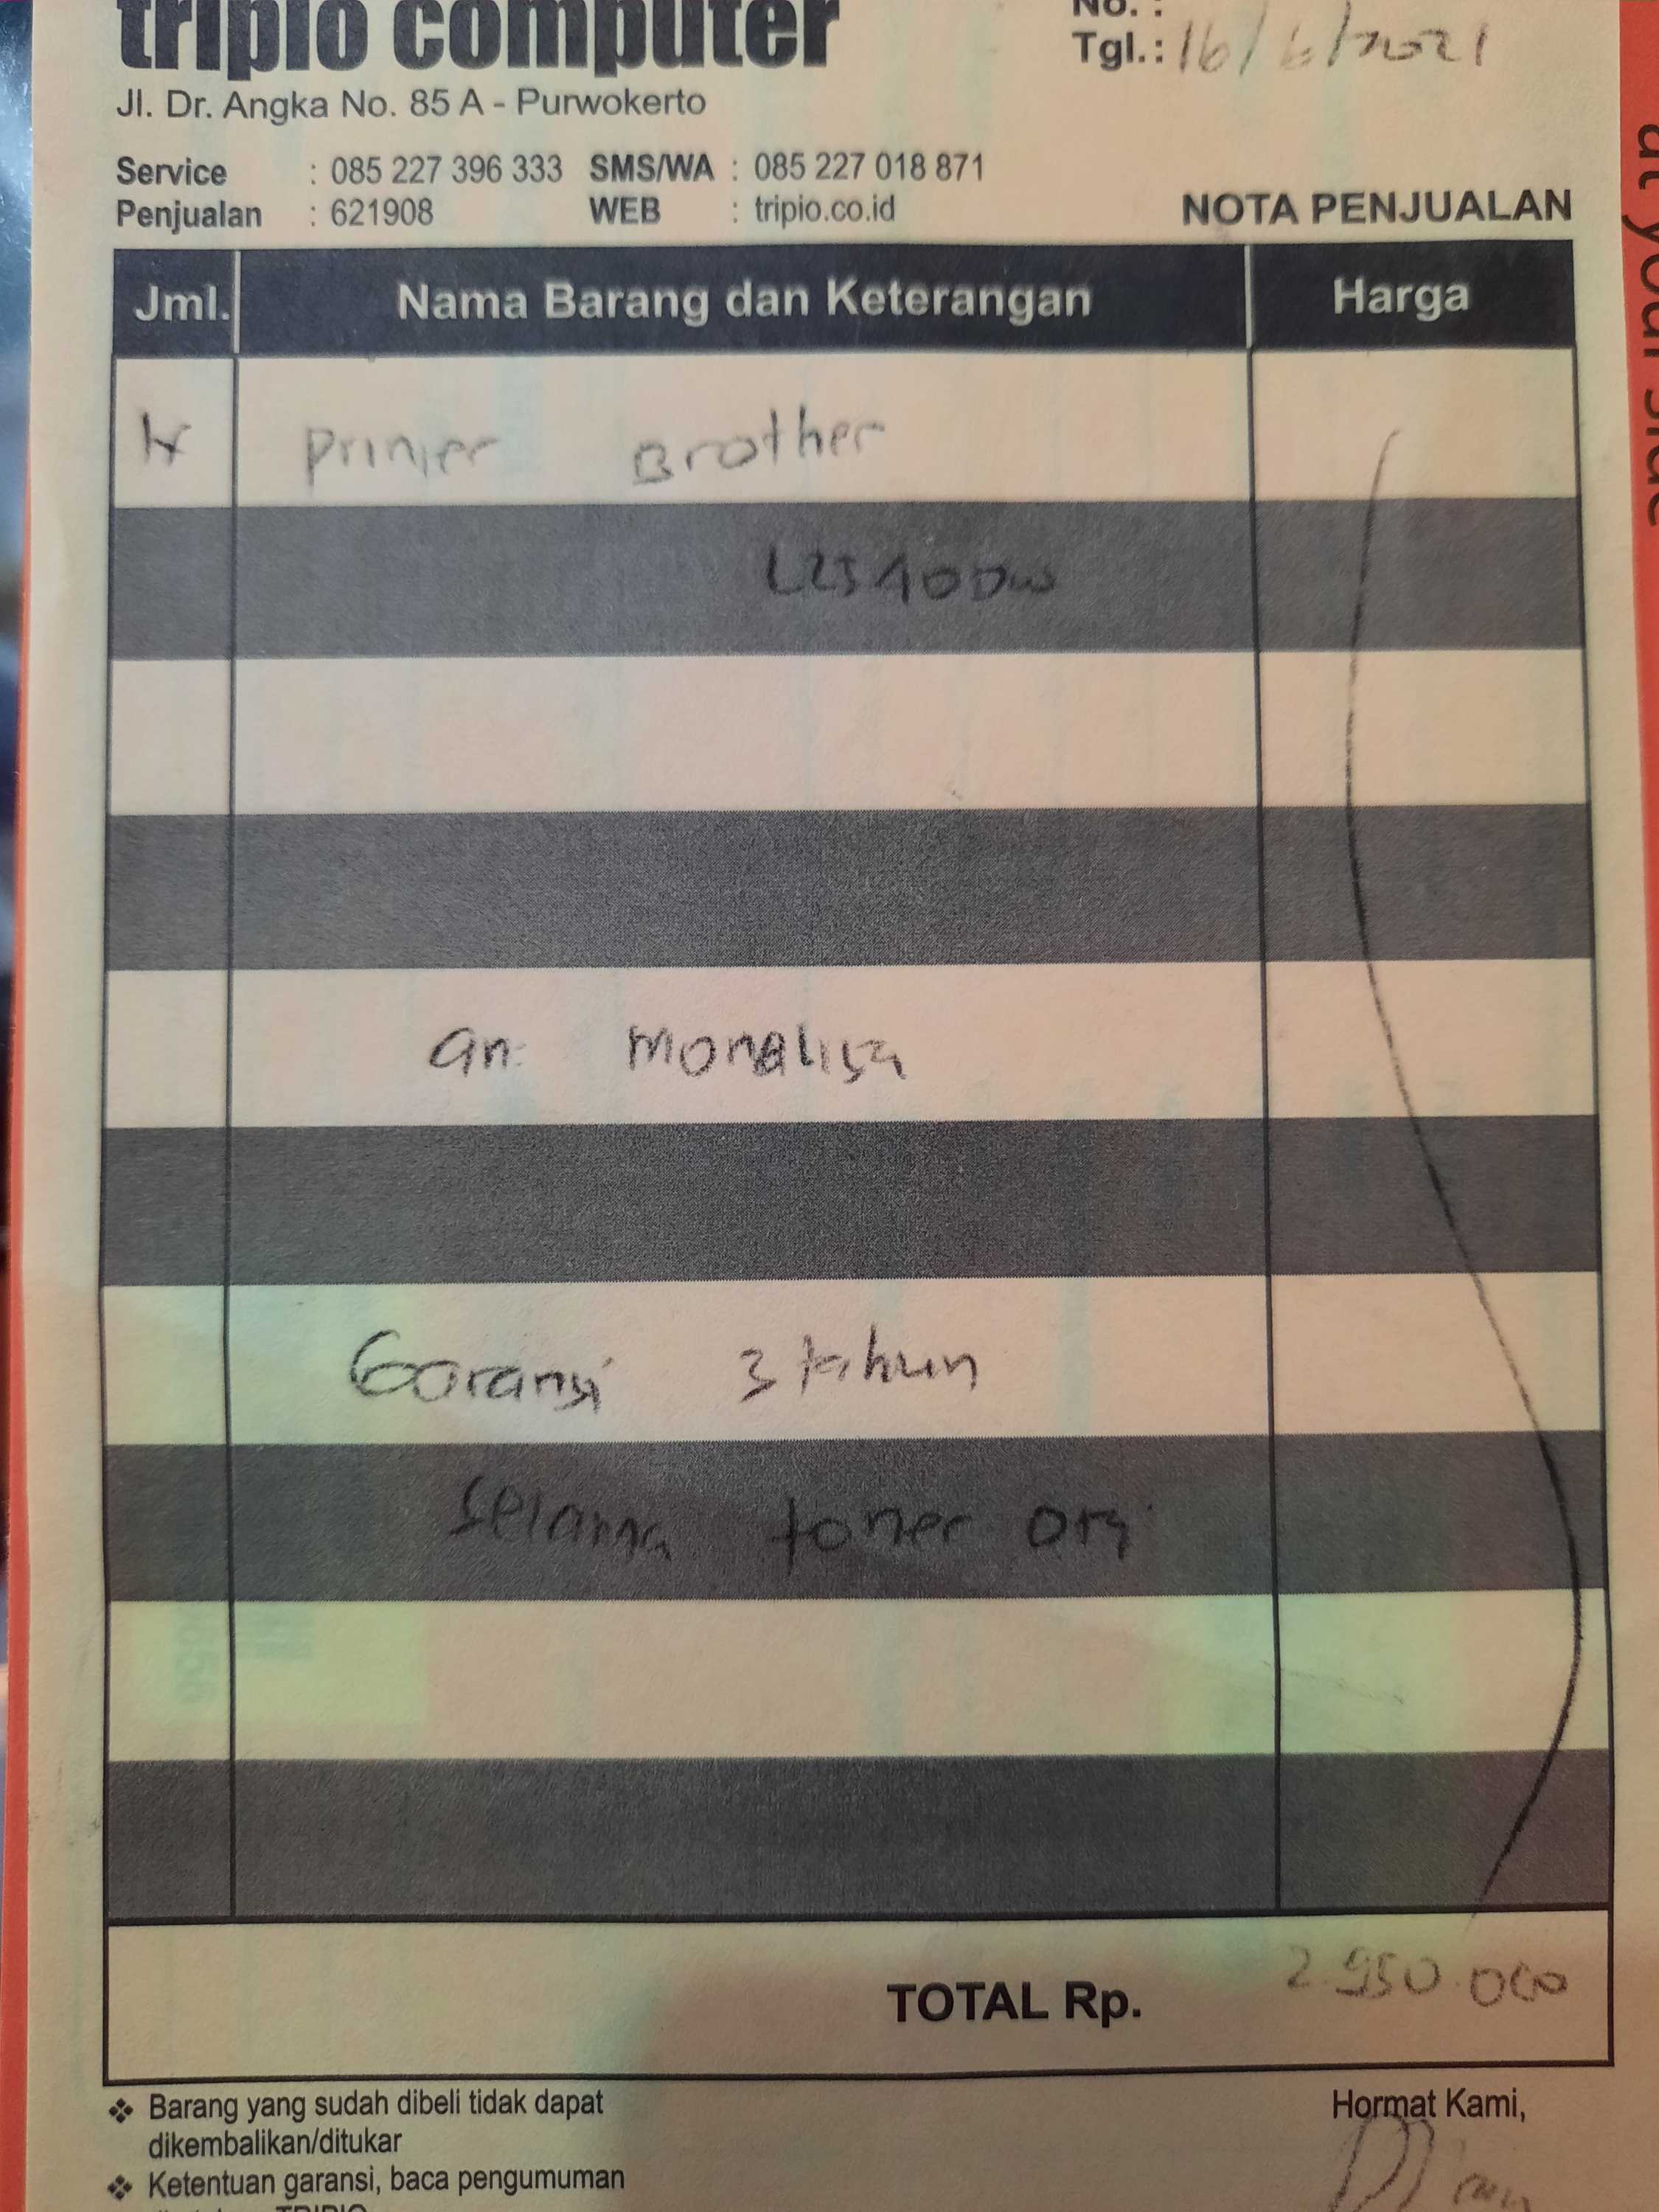 tripio computer
No. :
Tgl.: 16/6/2021
Jl. Dr. Angka No. 85 A - Purwokerto
Service : 085 227 396 333 SMS/WA : 085 227 018 871
Penjualan : 621908 WEB : tripio.co.id
NOTA PENJUALAN
Jml. Nama Barang dan Keterangan Harga
Printer Brother
L2540DW
an. monalisa
Garansi 3 tahun
selama toner ori
TOTAL Rp. 2.950.000
❖ Barang yang sudah dibeli tidak dapat
dikembalikan/ditukar
❖ Ketentuan garansi, baca pengumuman
TRIPIO
Hormat Kami,
at your side